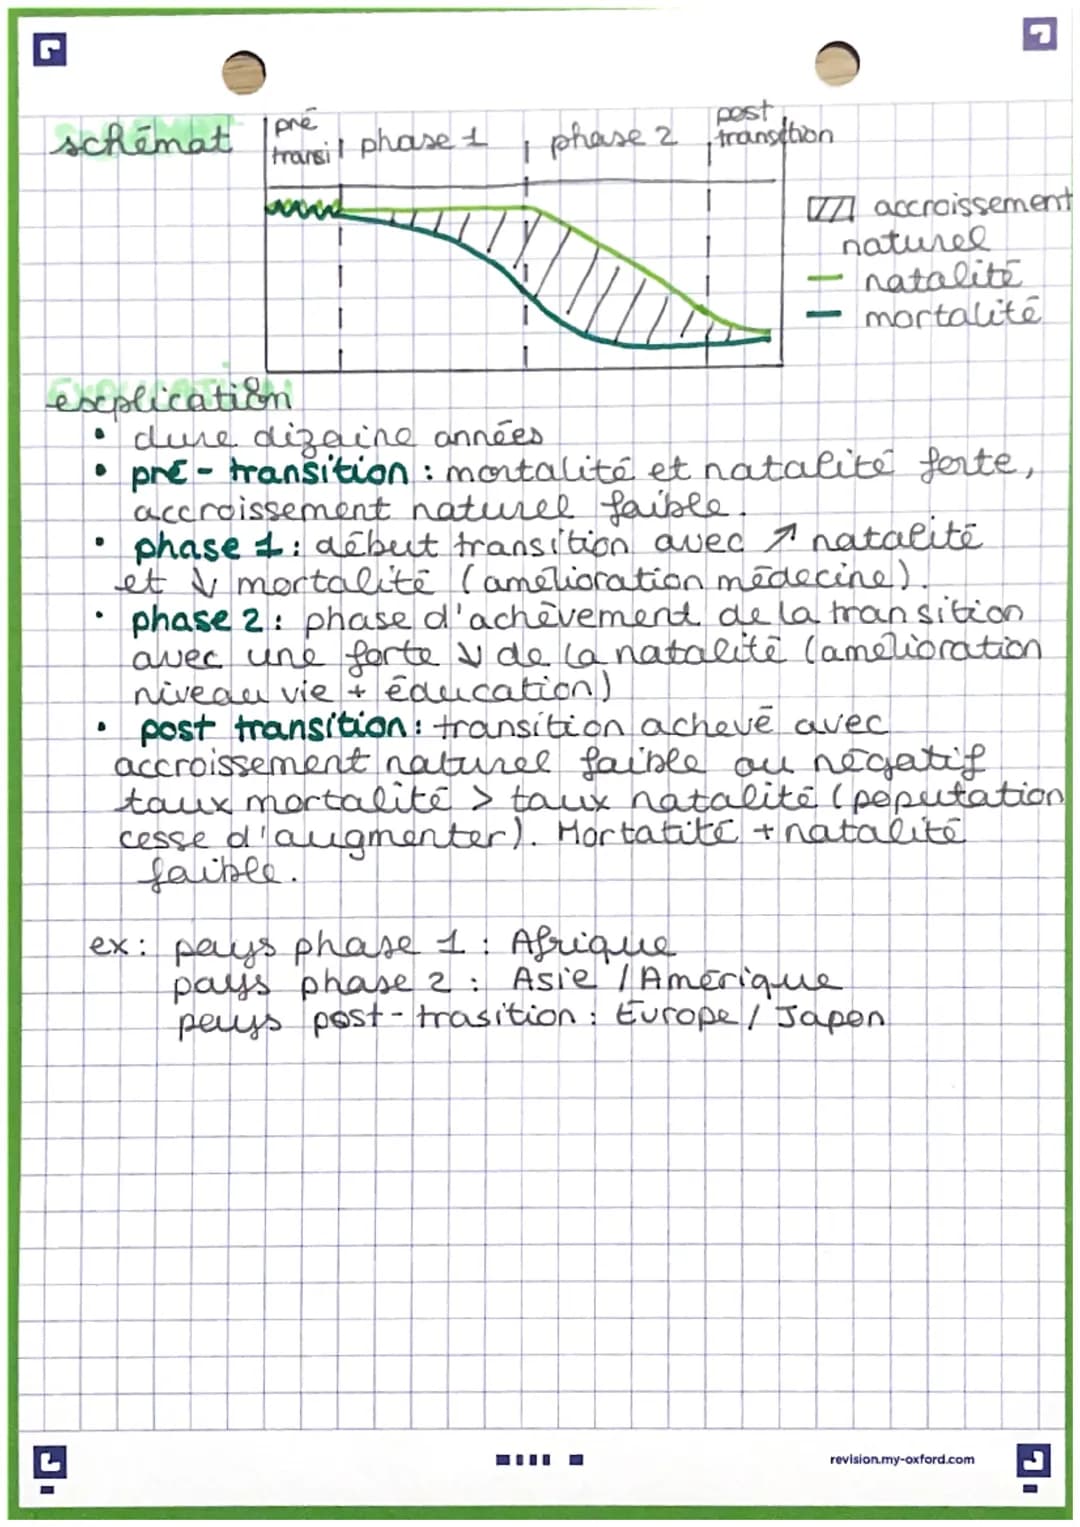 schémat
pré
transi
phase 1
phase 2
post
transition
accroissement
naturel
natalité
mortalité
explication
• dure dizaine années
• pré-transition : mortalité et natalité forte,
accroissement naturel faible.
• phase 1 : début transition avec ↗ natalité
et ↓ mortalité (amélioration médecine).
• phase 2 : phase d'achèvement de la transition
avec une forte ↓ de la natalité (amélioration
niveau vie + éducation)
• post transition : transition achevé avec
accroissement naturel faible ou négatif
taux mortalité > taux natalité (population
cesse d'augmenter). Mortalité + natalité
faible.
ex : pays phase 1 : Afrique
pays phase 2 : Asie / Amérique
pays post-trasition : Europe / Japon
revision.my-oxford.com